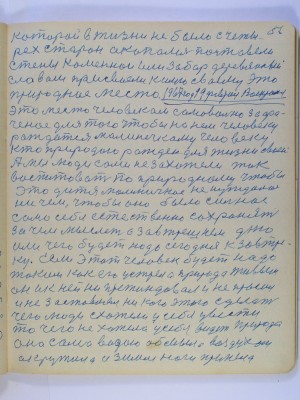 56
которой в жизни не было с четы
рех сторон а копали поставели
стены каменной или забор деревянный
словом присвоили к имю своему это
природное место. 1978 год 19 февраля
это место человеком самовольно захва
ченое для того чтобы на нем человеку
рождатся маленькому человеку
кто природою рожден для жизни своей
А мы люди сами не захотели так
воспитовать по природному чтобы
это дитя маленичкое не нуждалось
ни чем, чтобы оно было сильное
само себя естественно сохранять
за чем мыслить о завтрешнем дню
или чего будет надо сегодня к завтр-
ку. Если этот человек будет надо
таким как его устрела природа живым
он ак ней ни претендовал и не просил
и не заставлял ни кого этого сделать
чего люди схотели у себя увести
то чего не хотела у себя видеть природа
она сама водою обмыла воздухом
окружила и землею ноги приняла